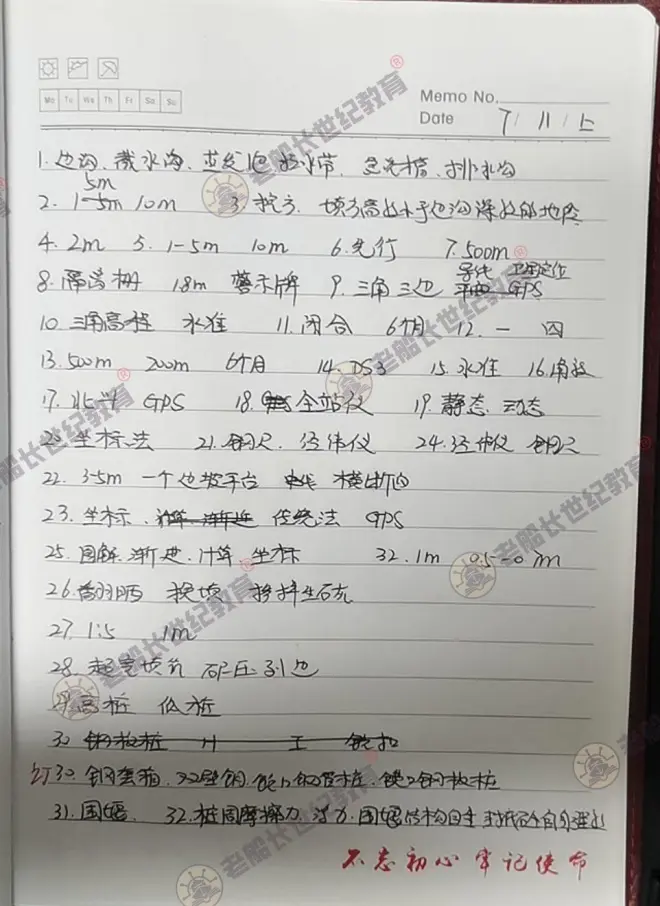 Memo No.
Mo Tu We Th Fr Sa Su
Date 7/11/上
1.边沟、截水沟、拦水带、急流槽、排水沟
5m
2. 1-5m 10m 3.挖方、填方高度小于边沟深度的地段
4. 2m 5. 1-5m 10m 6.先行 7. 500m
导线 卫星定位
8.隔离栅 1.8m 警示牌 9.三角 三边 GPS
10.三角高程 水准 11.闭合 6个月 12.一 四
13. 500m 200m 6个月 14. DS3 15.水准 16.角度
17.北斗 GPS 18.全站仪 19.静态 动态
20.坐标法 21.钢尺、经纬仪 24.经纬仪 钢尺
22. 3-5m 一个边坡平台 中线 横断面
23.坐标、传统法 GPS
25.图解、渐近、计算、坐标 32. 1m 0.5-0.7m
26.翻晒 换填 掺拌生石灰
27. 1:5 1m
28.超宽填筑 碾压到边
29.高桩 低桩
30 钢板桩 H 工 锁扣
订30.钢套箱、双壁钢、锁口钢管桩、锁口钢板桩
31.围堰、32.桩周摩擦力、浮力、围堰结构自重
不忘初心 牢记使命
老船长世纪教育